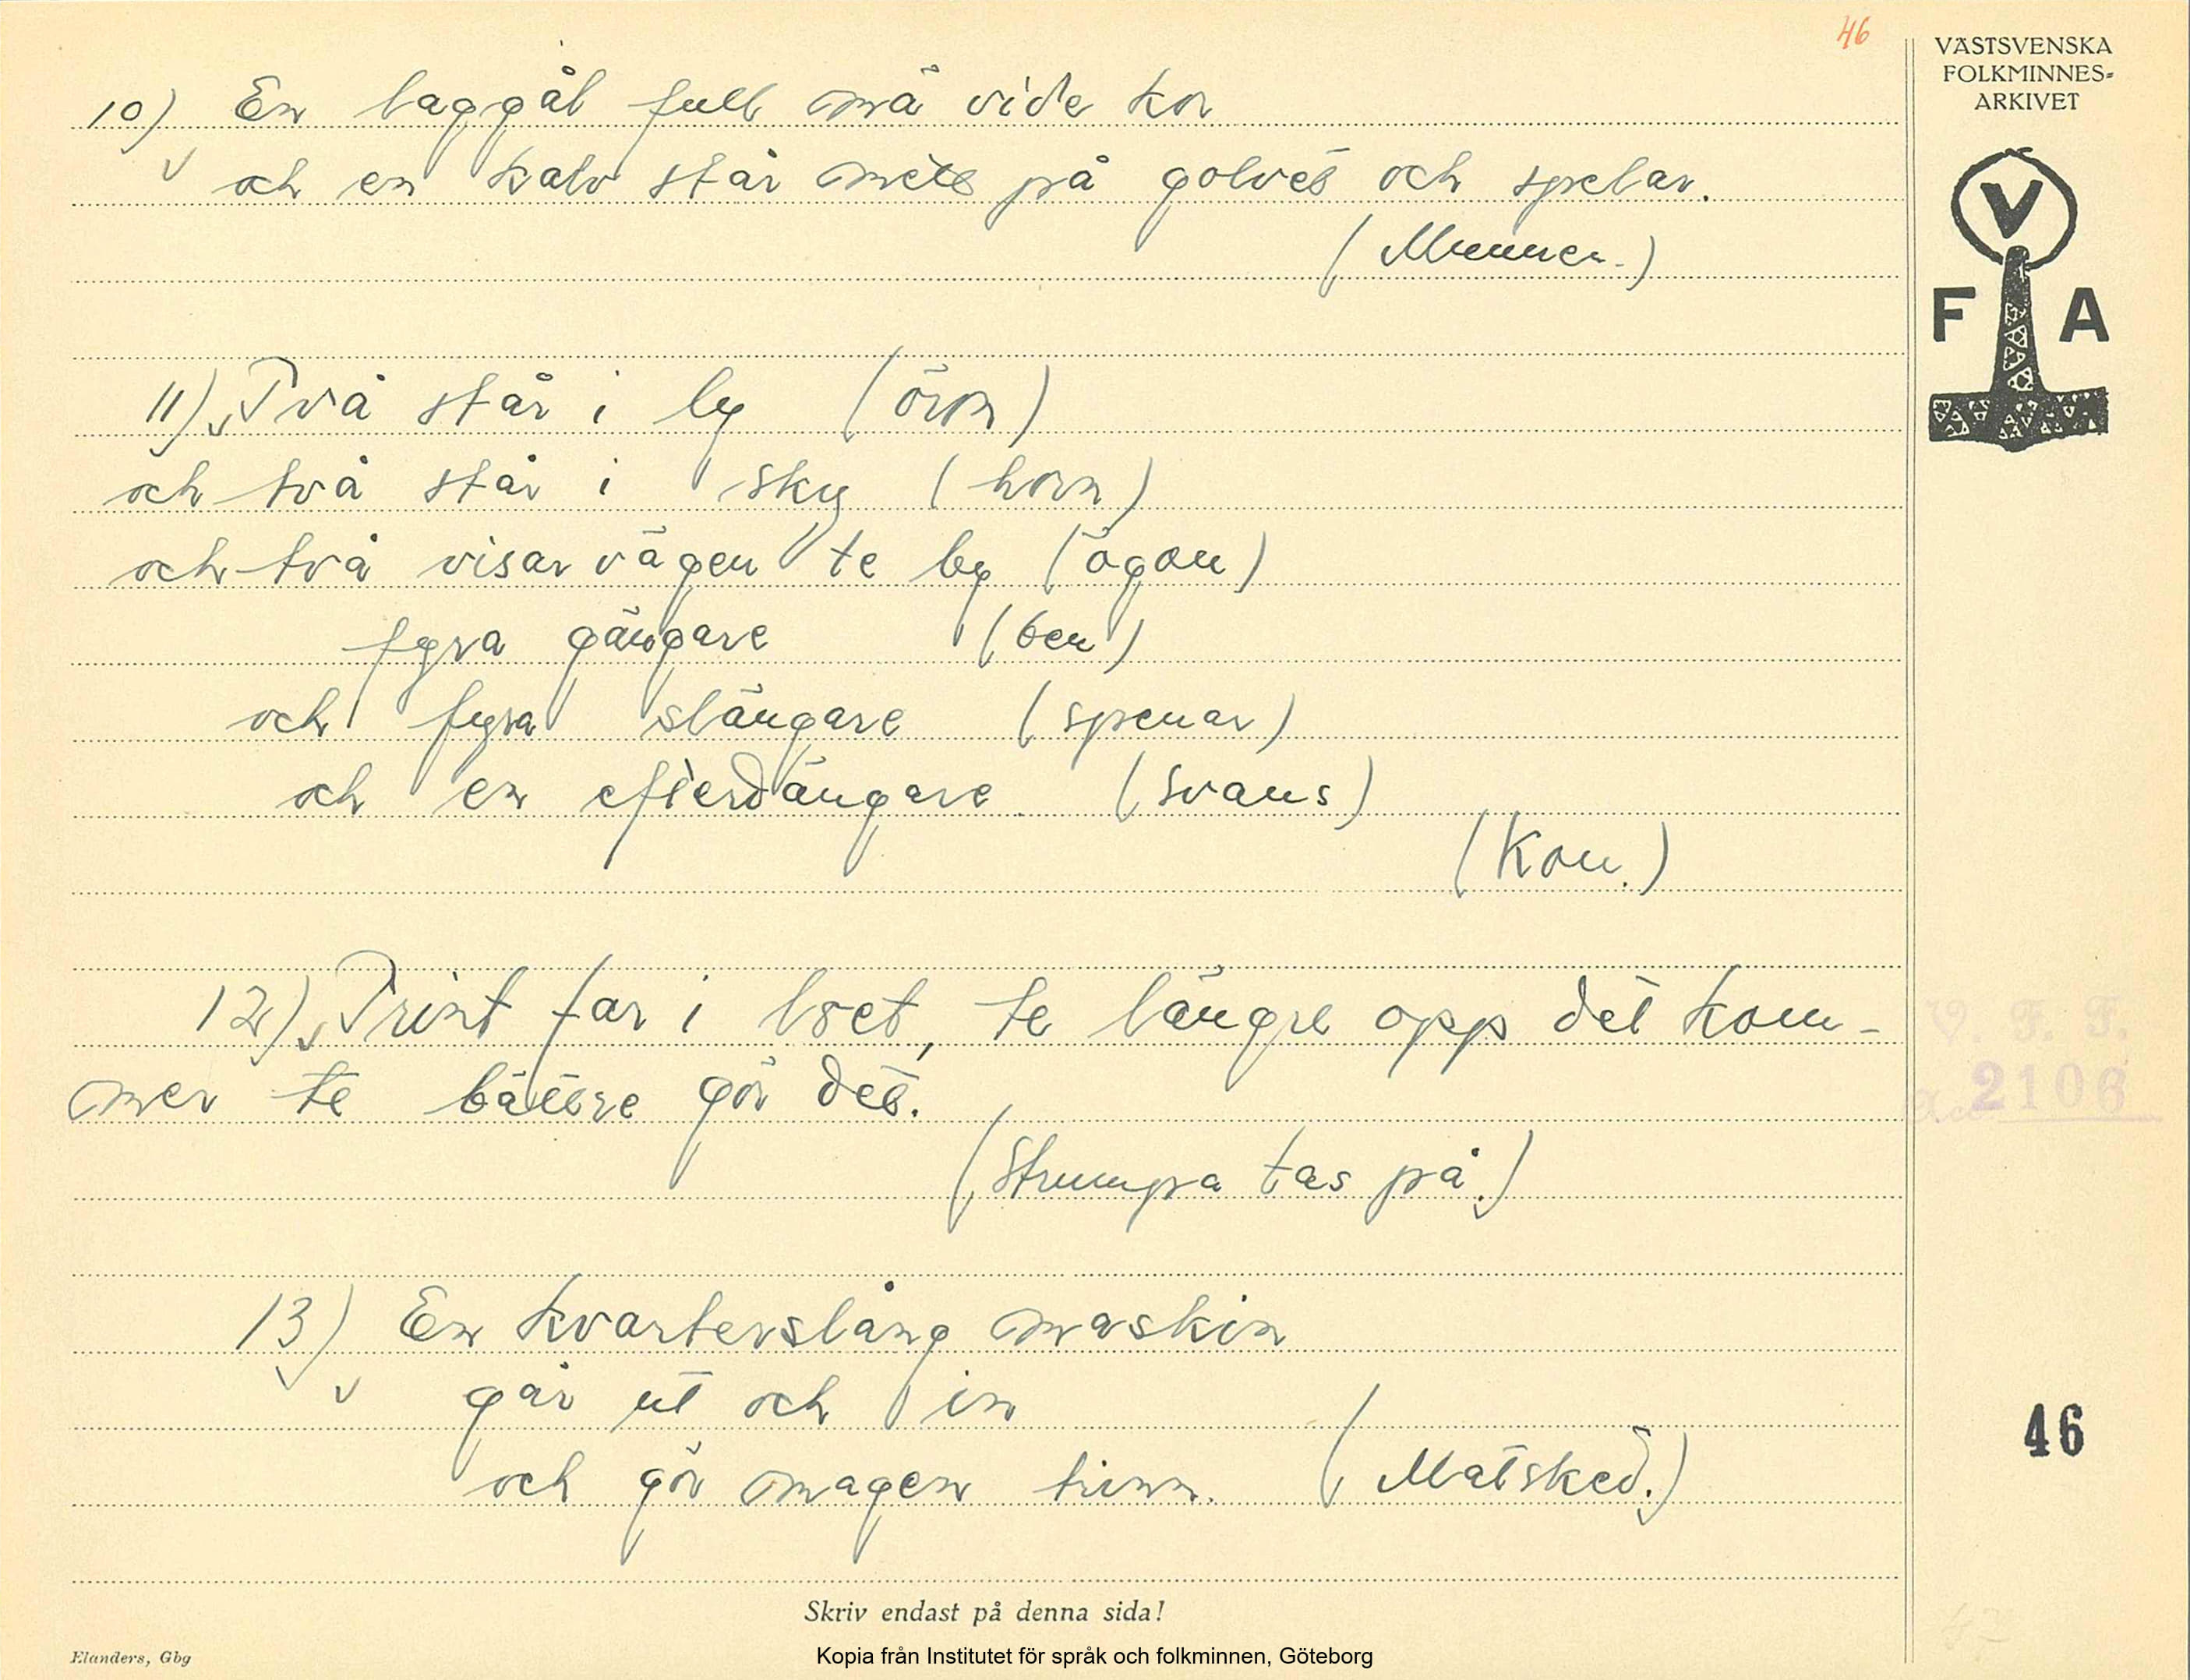 46
VÄSTSVENSKA
FOLKMINNES-
ARKIVET
V
F A
10) En laggål full mä vide kor
och en kalv står mett på golvet och spelar.
(Munnen.)
11) Två står i ly (öron)
och två står i sky (horn)
och två visar vägen te by (ögon)
fyra gångare (ben)
och fyra slängare (spenar)
och en efterdängare (svans)
(Kon.)
12) Trint far i loet, te längre opp det kom-
mer te bättre gör det.
(Strumpa tas på.)
V. F. F.
2106
13) En kvarterslång maskin
går ut och in
och gör magen trinn. (Matsked.)
46
Skriv endast på denna sida!
Elanders, Gbg
Kopia från Institutet för språk och folkminnen, Göteborg